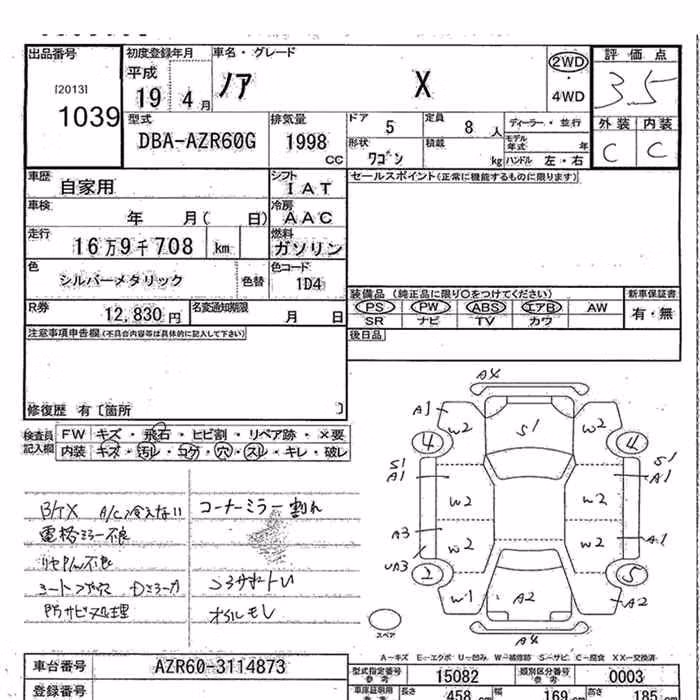 出品番号
[2013]
1039
初度登録年月
平成
19 4月
車名・グレード
ノア X
2WD
・
4WD
評価点
3.5
外装 内装
C C
型式
DBA-AZR60G
排気量
1998
CC
ドア
5
定員
8人
形状
ワゴン
積載
kg
ディーラー・並行
モデル年式 年
ハンドル 左・右
車歴
自家用
シフト
IAT
車検
年 月( 日)
冷房
AAC
走行
16万9千708 km
燃料
ガソリン
色
シルバーメタリック
色替
色コード
1D4
R券
12,830円
名変通知期限
月 日
セールスポイント(正常に機能するものに限ります)
装備品(純正品に限り○をつけてください)
PS PW ABS エアB AW
SR ナビ TV カワ
新車保証書
有・無
後日品
注意事項申告欄(不具合内容等は具体的に記入して下さい)
修復歴 有〔箇所 〕
検査員
記入欄
FW キズ・飛石・ヒビ割・リペア跡・×要
内装 キズ・汚レ・コゲ・穴・スレ・キレ・破レ
A/C冷えない
コーナーミラー割れ
電格ミラー不良
防サビ処理
オイルモレ
A4
A1 W2 S1 W2
4 4
S1 A1 W2 W2 S1 A1
A3 W2 W2 A1
UA3
2 5
W1 A2 A2
A4
スペア
A-キズ E-エクボ U-凹み W-補修跡 S-サビ C-腐食 XX-交換済
車台番号
AZR60-3114873
登録番号
型式指定番号
参考
15082
類別区分番号
参考
0003
長さ
458 cm
幅
169 cm
高さ
185 cm